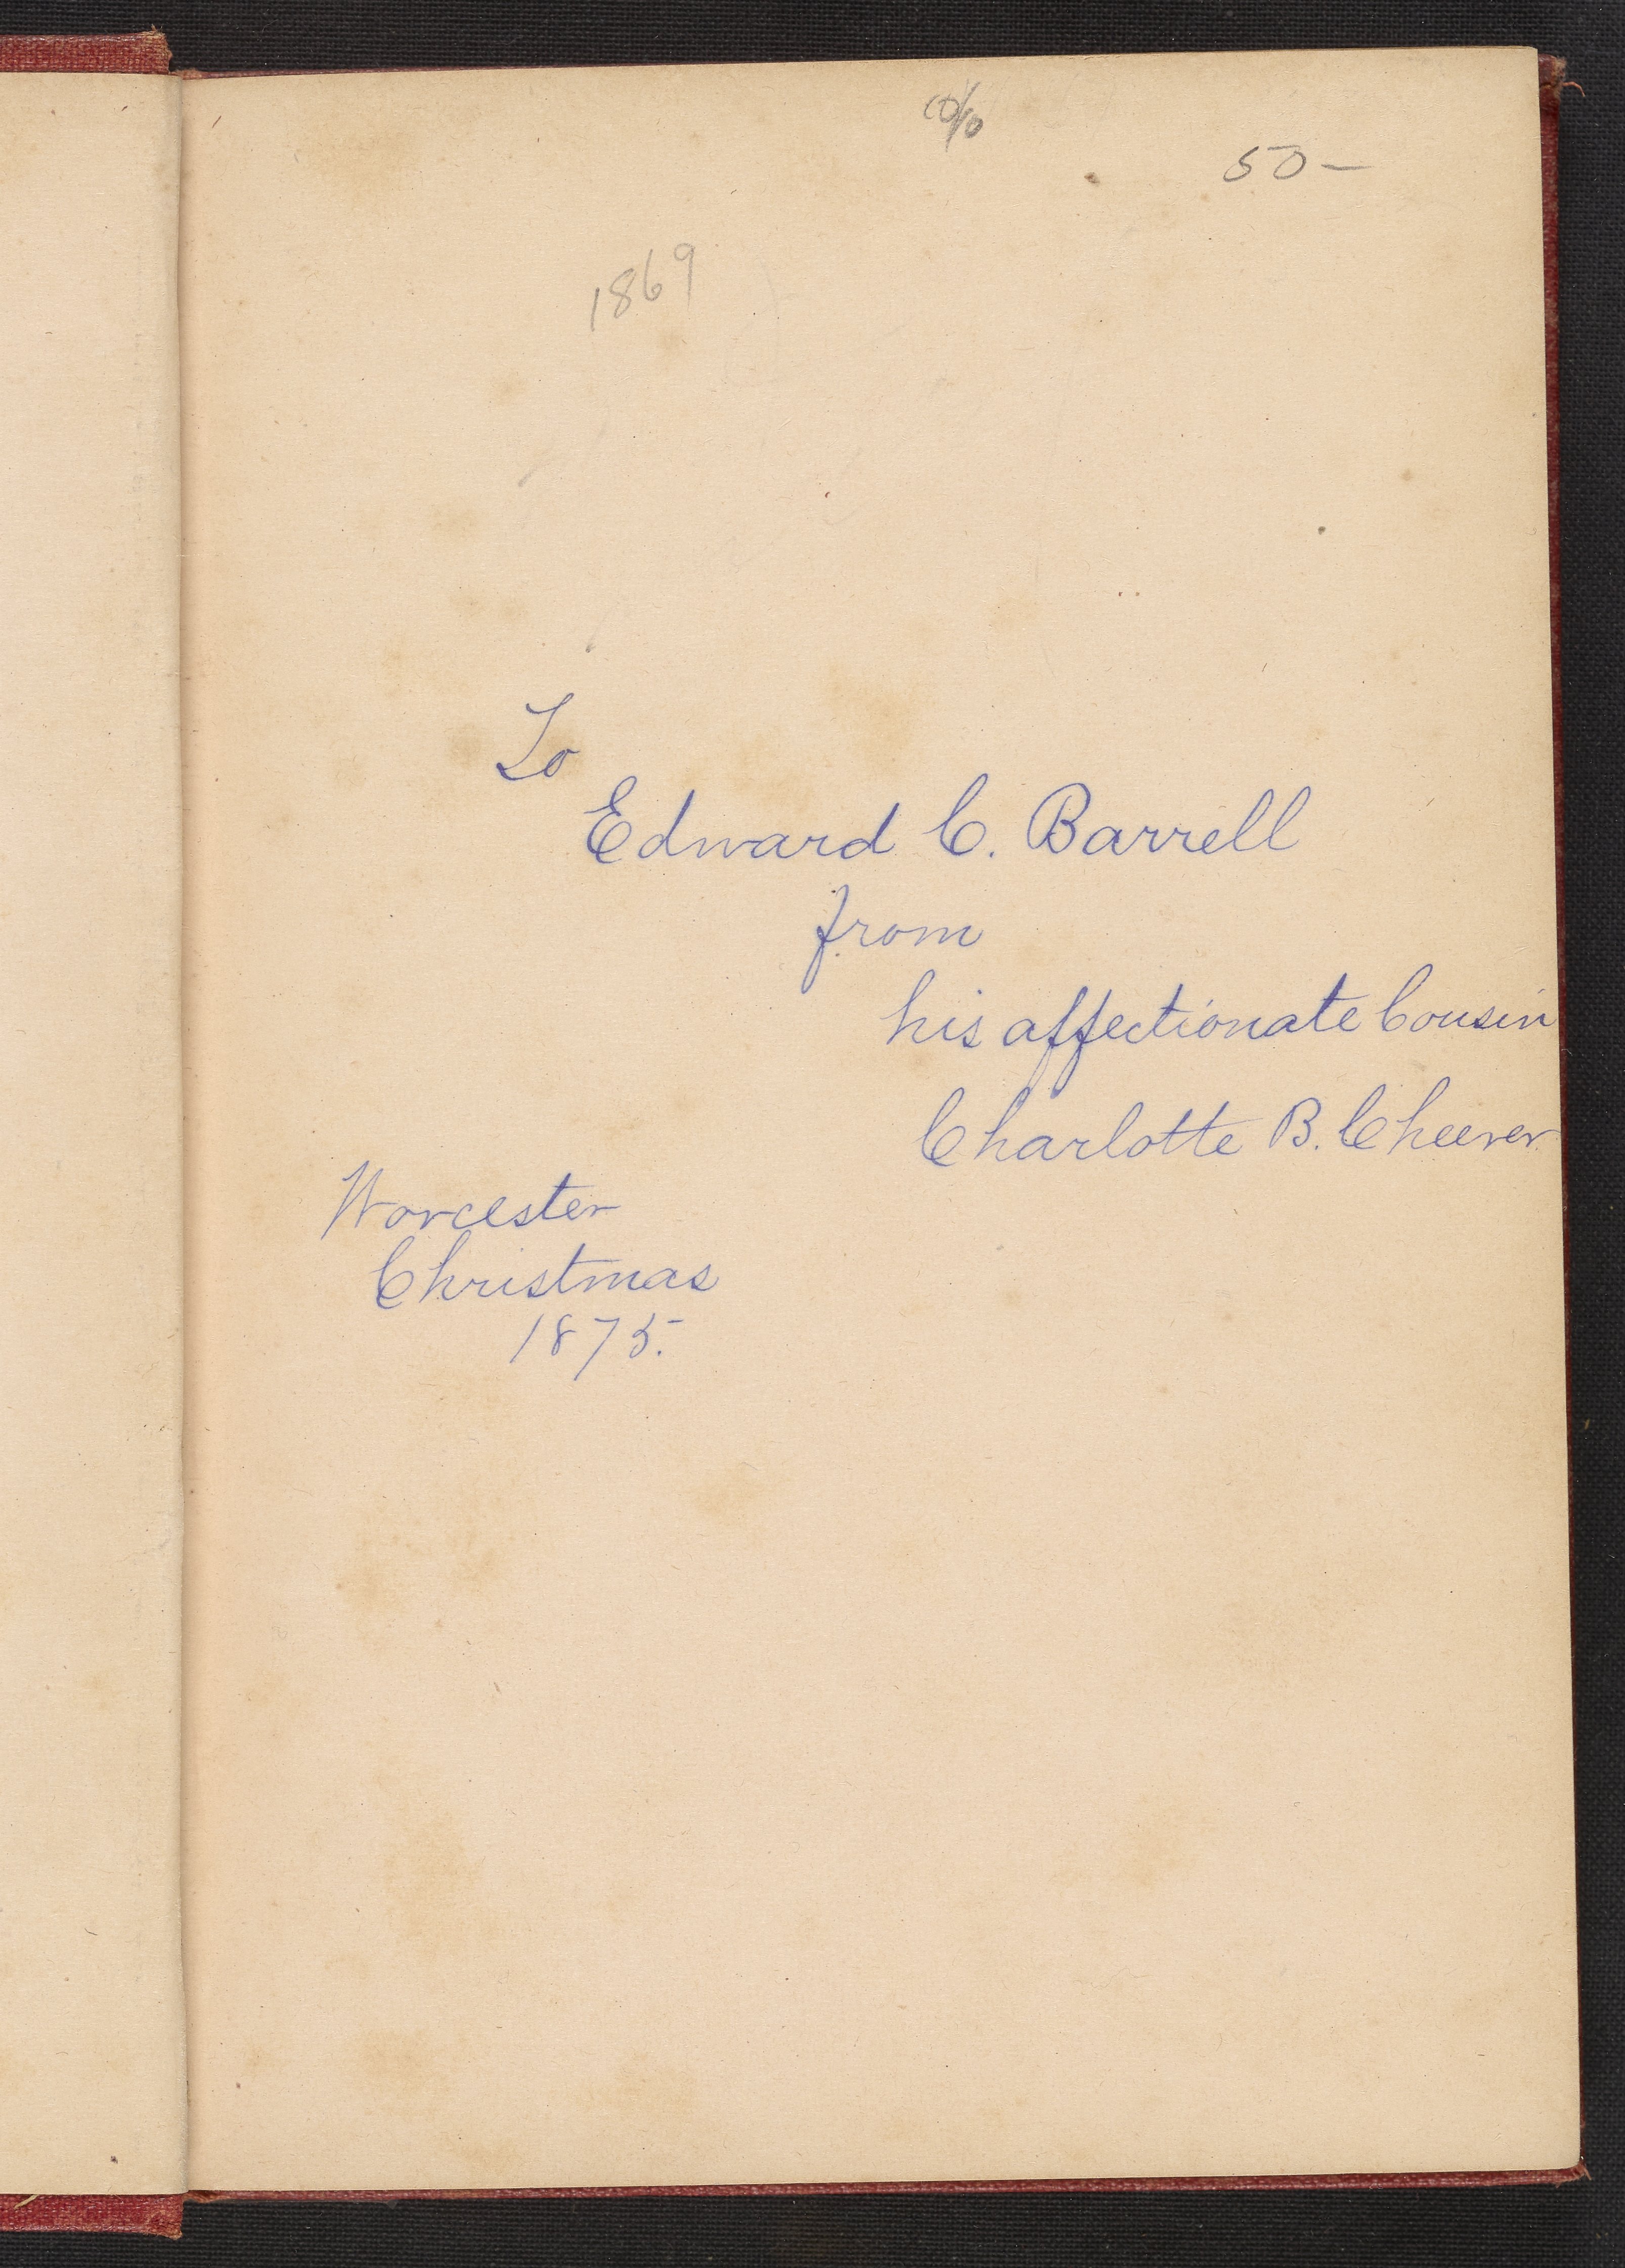 50-
1869
To
Edward C. Barrell
from
his affectionate Cousin
Charlotte B. Cheever
Worcester
Christmas
1875.